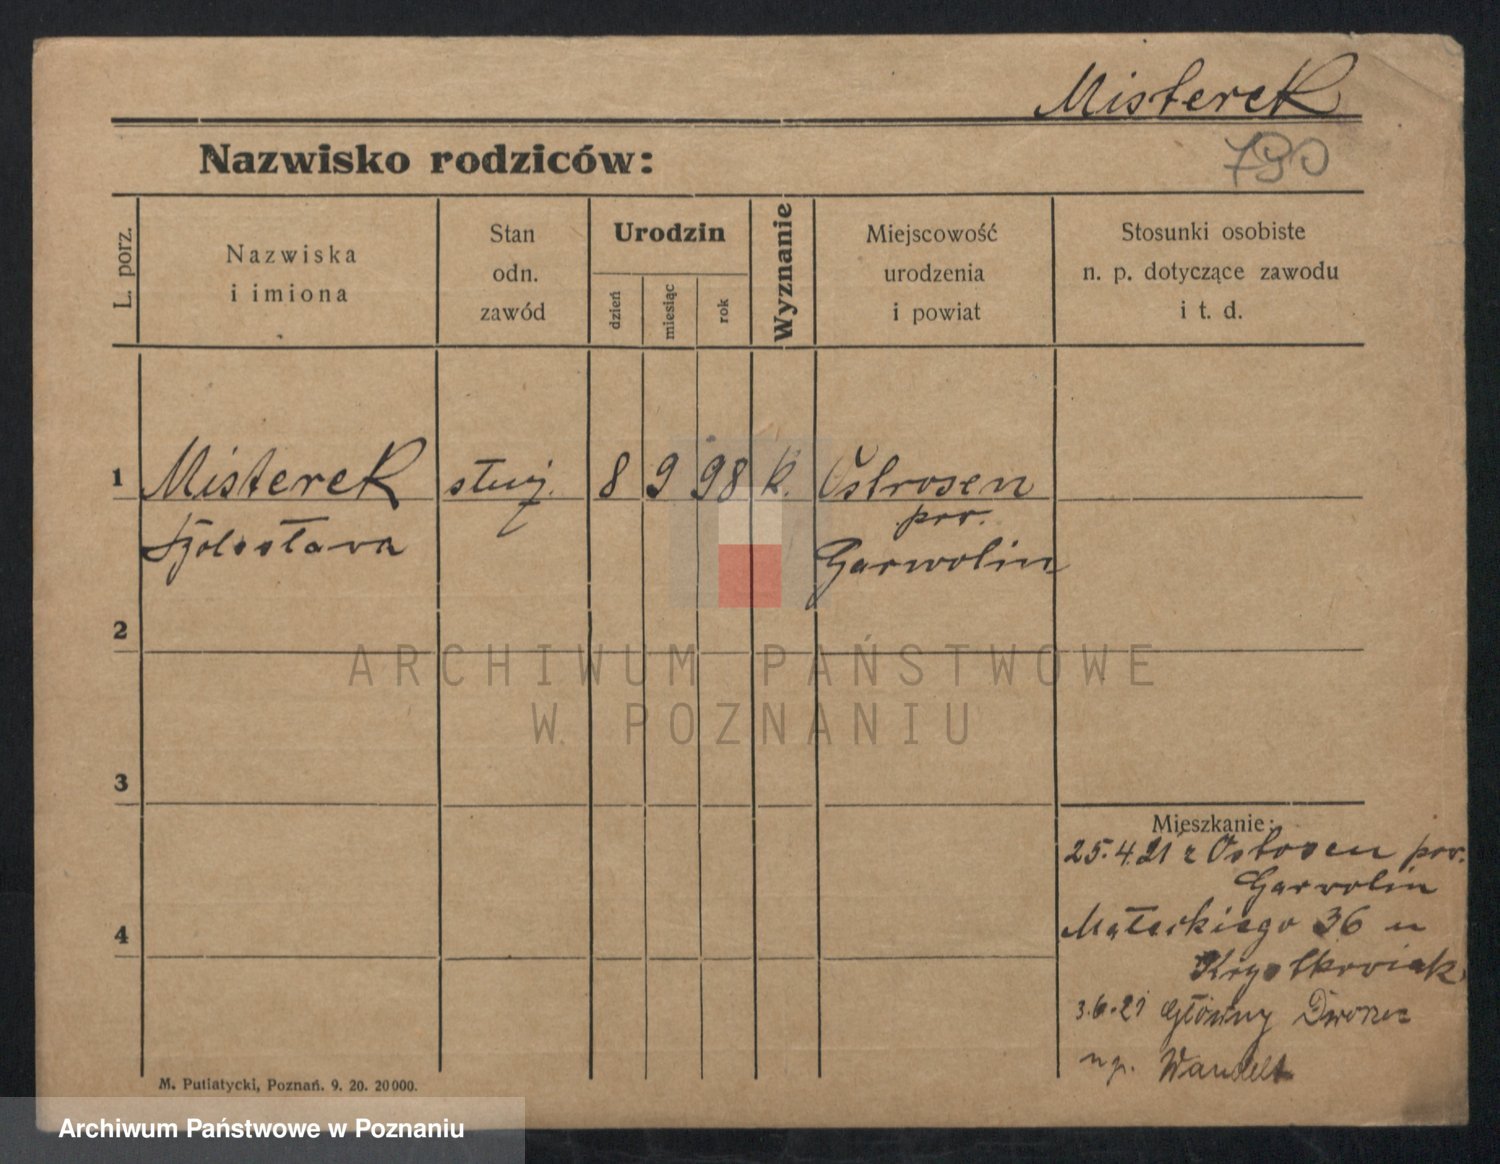 Misterek
Nazwisko rodziców:
790
L. porz.
Nazwiska
i imiona
Stan
odn.
zawód
Urodzin
dzień
miesiąc
rok
Wyznanie
Miejscowość
urodzenia
i powiat
Stosunki osobiste
n. p. dotyczące zawodu
i t. d.
1 Misterek służ. 8 9 98 k. Ostrosen
pow.
Garwolin
2
3
4
Mieszkanie:
25.4.21 z Ostrosen pow.
Garwolin
Małeckiego 36 u
3.6.21 Główny Dworzec
np. Wandelt
M. Putiatycki, Poznań. 9. 20. 20000.
ARCHIWUM PAŃSTWOWE
W POZNANIU
Archiwum Państwowe w Poznaniu